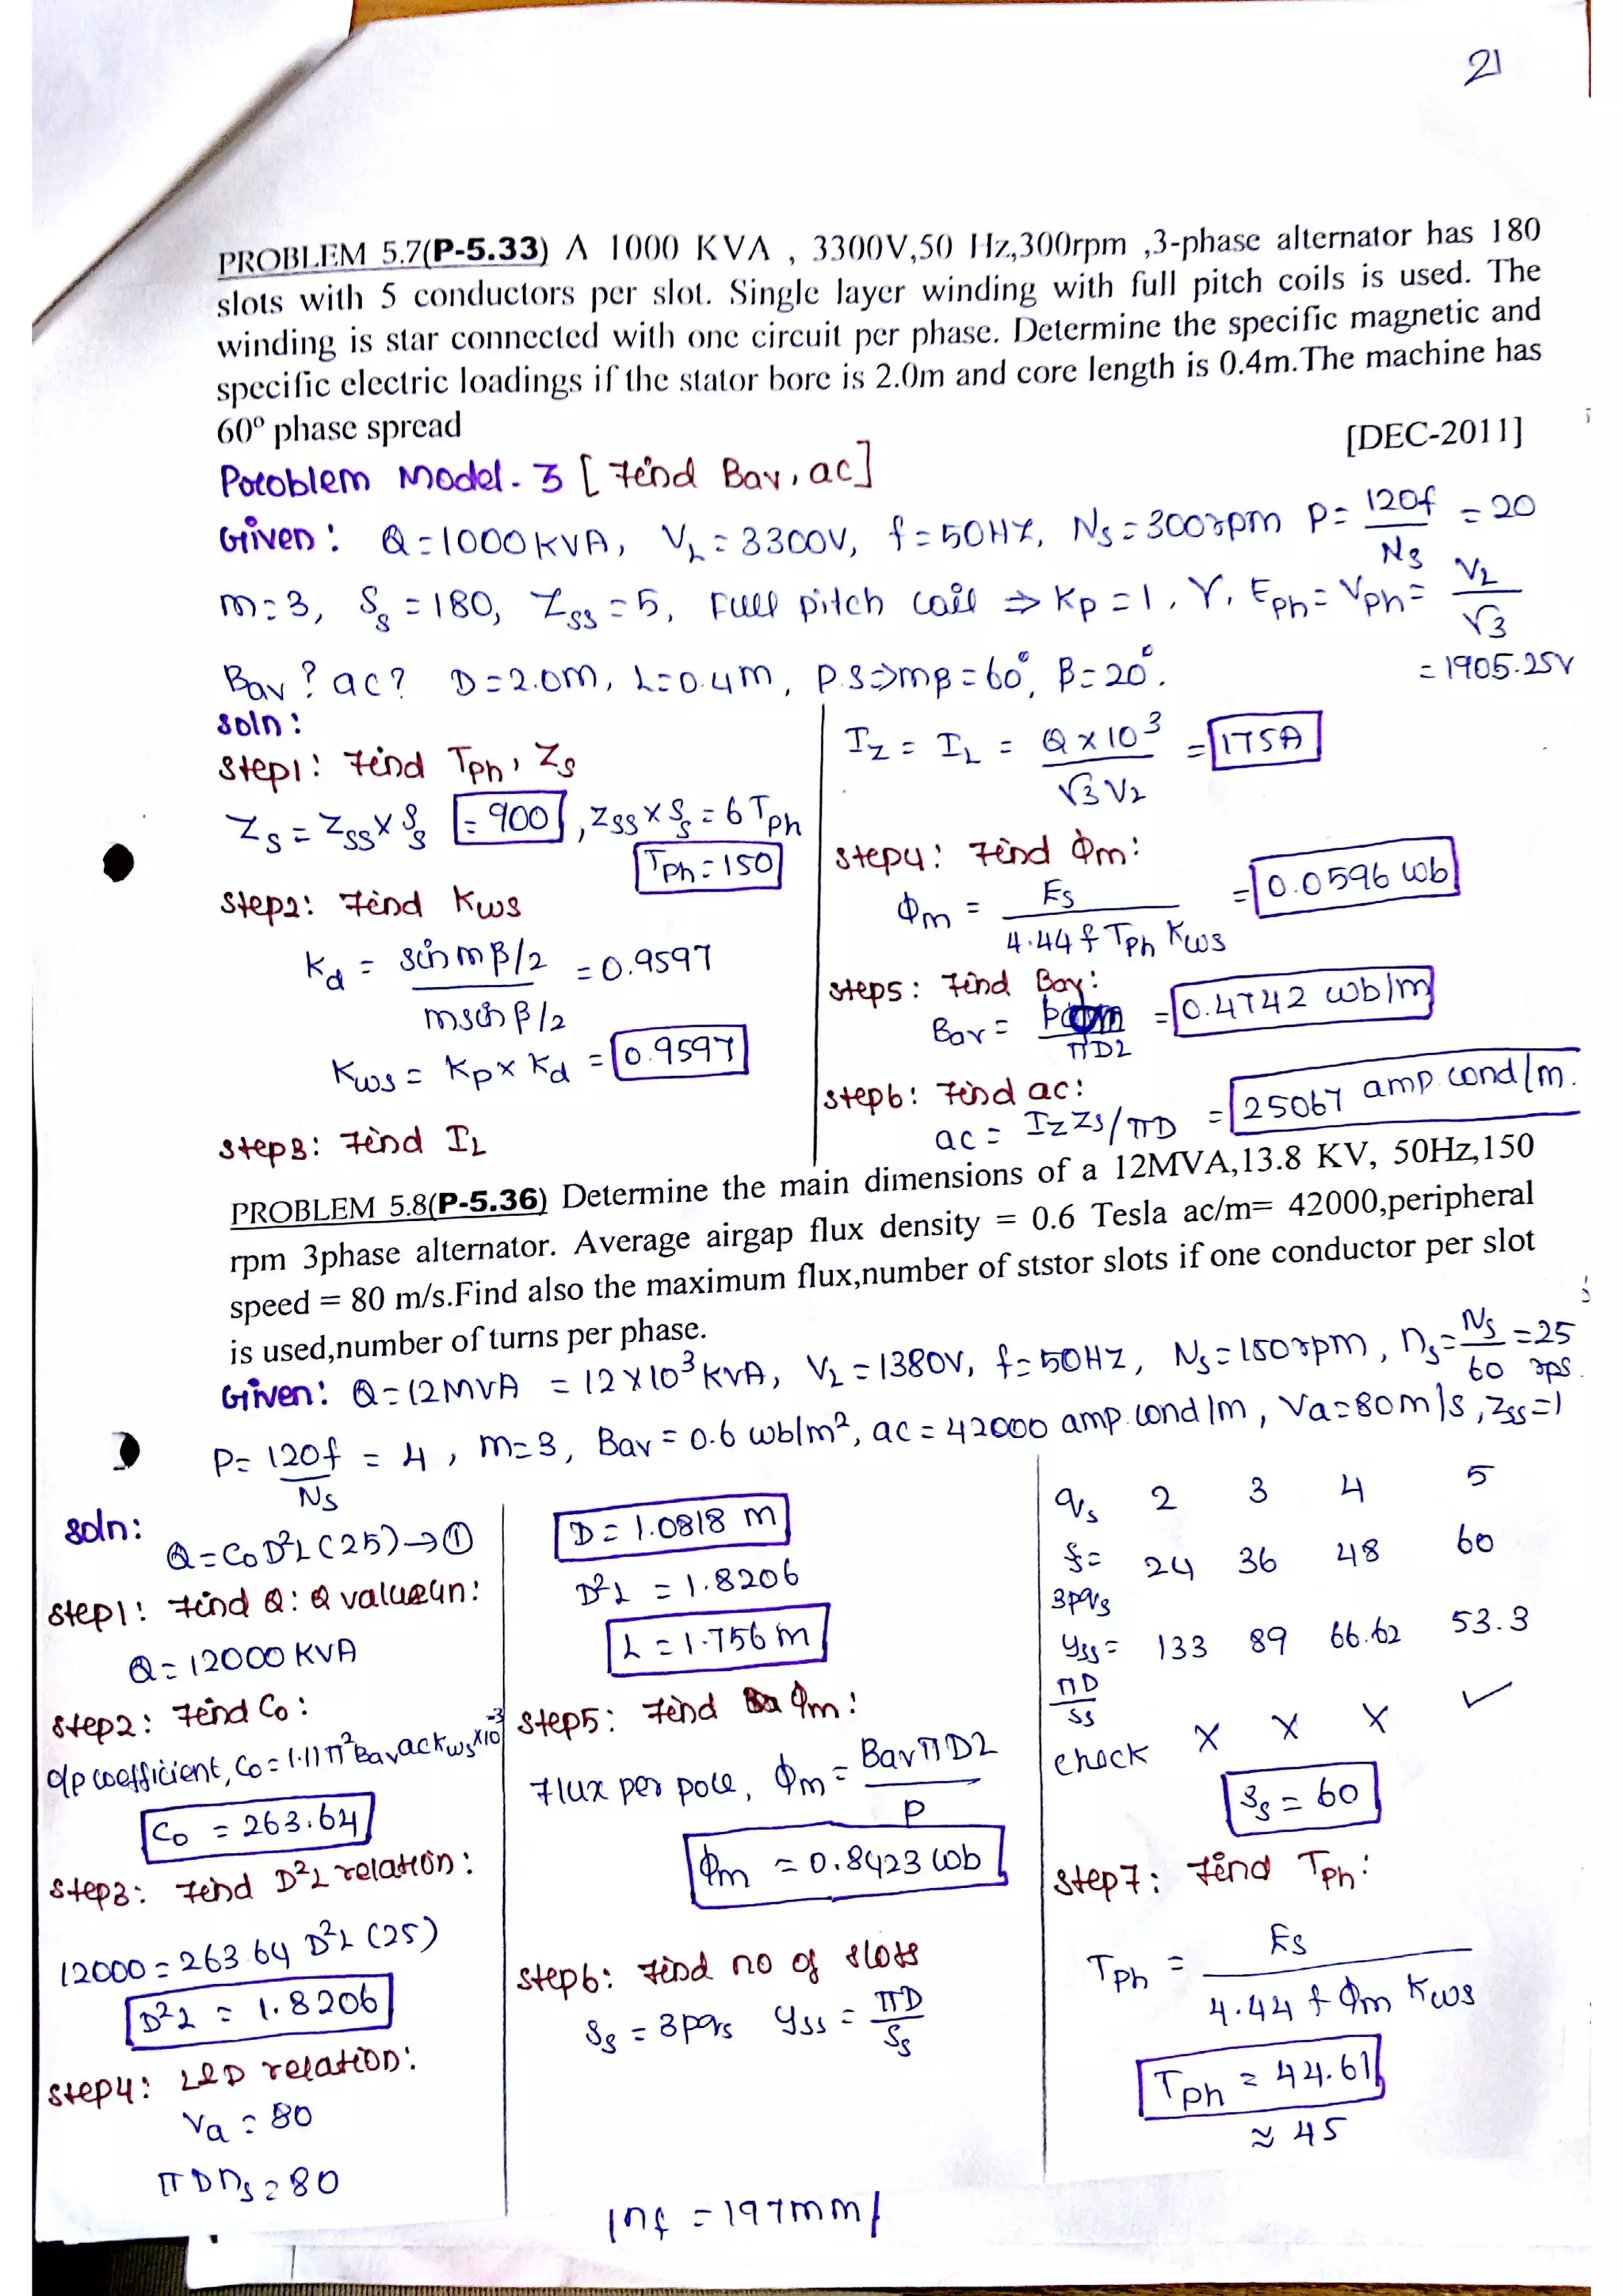 21
PROBLEM 5.7(P-5.33) A 1000 KVA , 3300V,50 Hz,300rpm ,3-phase alternator has 180
slots with 5 conductors per slot. Single layer winding with full pitch coils is used. The
winding is star connected with one circuit per phase. Determine the specific magnetic and
specific electric loadings if the stator bore is 2.0m and core length is 0.4m.The machine has
60° phase spread
[DEC-2011]
Problem Model - 3 [ Find Bav, ac]
Given: Q = 1000KVA, VL = 3300V, f = 50HZ, Ns = 300rpm P = 120f/Ns = 20
m = 3, Ss = 180, Zss = 5, Full pitch coil ⇒ Kp = 1, Y, Eph = Vph = VL/√3
= 1905.25V
Bav ? ac? D = 2.0m, L = 0.4m, P.S ⇒ mβ = 60°, β = 20°.
Soln:
Step1: Find Tph, Zs
Zs = Zss x Ss = 900, Zss x Ss = 6Tph
Tph = 150
Step2: Find Kws
Kd = sin mβ/2 / m sin β/2 = 0.9597
Kws = Kp x Kd = 0.9597
Step3: Find IL
Iz = IL = Q x 10³ / √3 VL = 175A
Step4: Find Φm:
Φm = Es / 4.44 f Tph Kws = 0.0596 wb
Step5: Find Bav:
Bav = pΦm / πDL = 0.4742 wb/m
Step6: Find ac:
ac = Iz Zs / πD = 25067 amp.cond/m.
PROBLEM 5.8(P-5.36) Determine the main dimensions of a 12MVA,13.8 KV, 50Hz,150
rpm 3phase alternator. Average airgap flux density = 0.6 Tesla ac/m= 42000,peripheral
speed = 80 m/s.Find also the maximum flux,number of ststor slots if one conductor per slot
is used,number of turns per phase.
Given: Q = 12MVA = 12 x 10³ KVA, VL = 1380V, f = 50HZ, Ns = 150rpm, ns = Ns/60 = 25 rps.
P = 120f/Ns = 4, m = 3, Bav = 0.6 wb/m², ac = 42000 amp.cond/m, Va = 80m/s, Zss = 1
Soln:
Q = C₀D²L (25) → ①
Step1: Find Q: Q value
Q = 12000 KVA
Step2: Find C₀:
o/p coefficient, C₀ = 1.11π² Bav ac Kws x10⁻³
C₀ = 263.64
Step3: Find D²L relation:
12000 = 263.64 D²L (25)
D²L = 1.8206
Step4: L&D relation:
Va = 80
πDns = 80
D = 1.0818 m
D²L = 1.8206
L = 1.756 m
Step5: Find Φm:
Flux per pole, Φm = BavπDL / P
Φm = 0.8423 wb
Step6: Find no of slots
Ss = 3pqs yss = πD/Ss
qs 2 3 4 5
Ss = 3pqs 24 36 48 60
yss = πD/Ss 133 89 66.62 53.3
check X X X ✓
Ss = 60
Step7: Find Tph:
Tph = Es / 4.44 f Φm Kws
Tph = 44.61
≈ 45
Inf = 197mm/